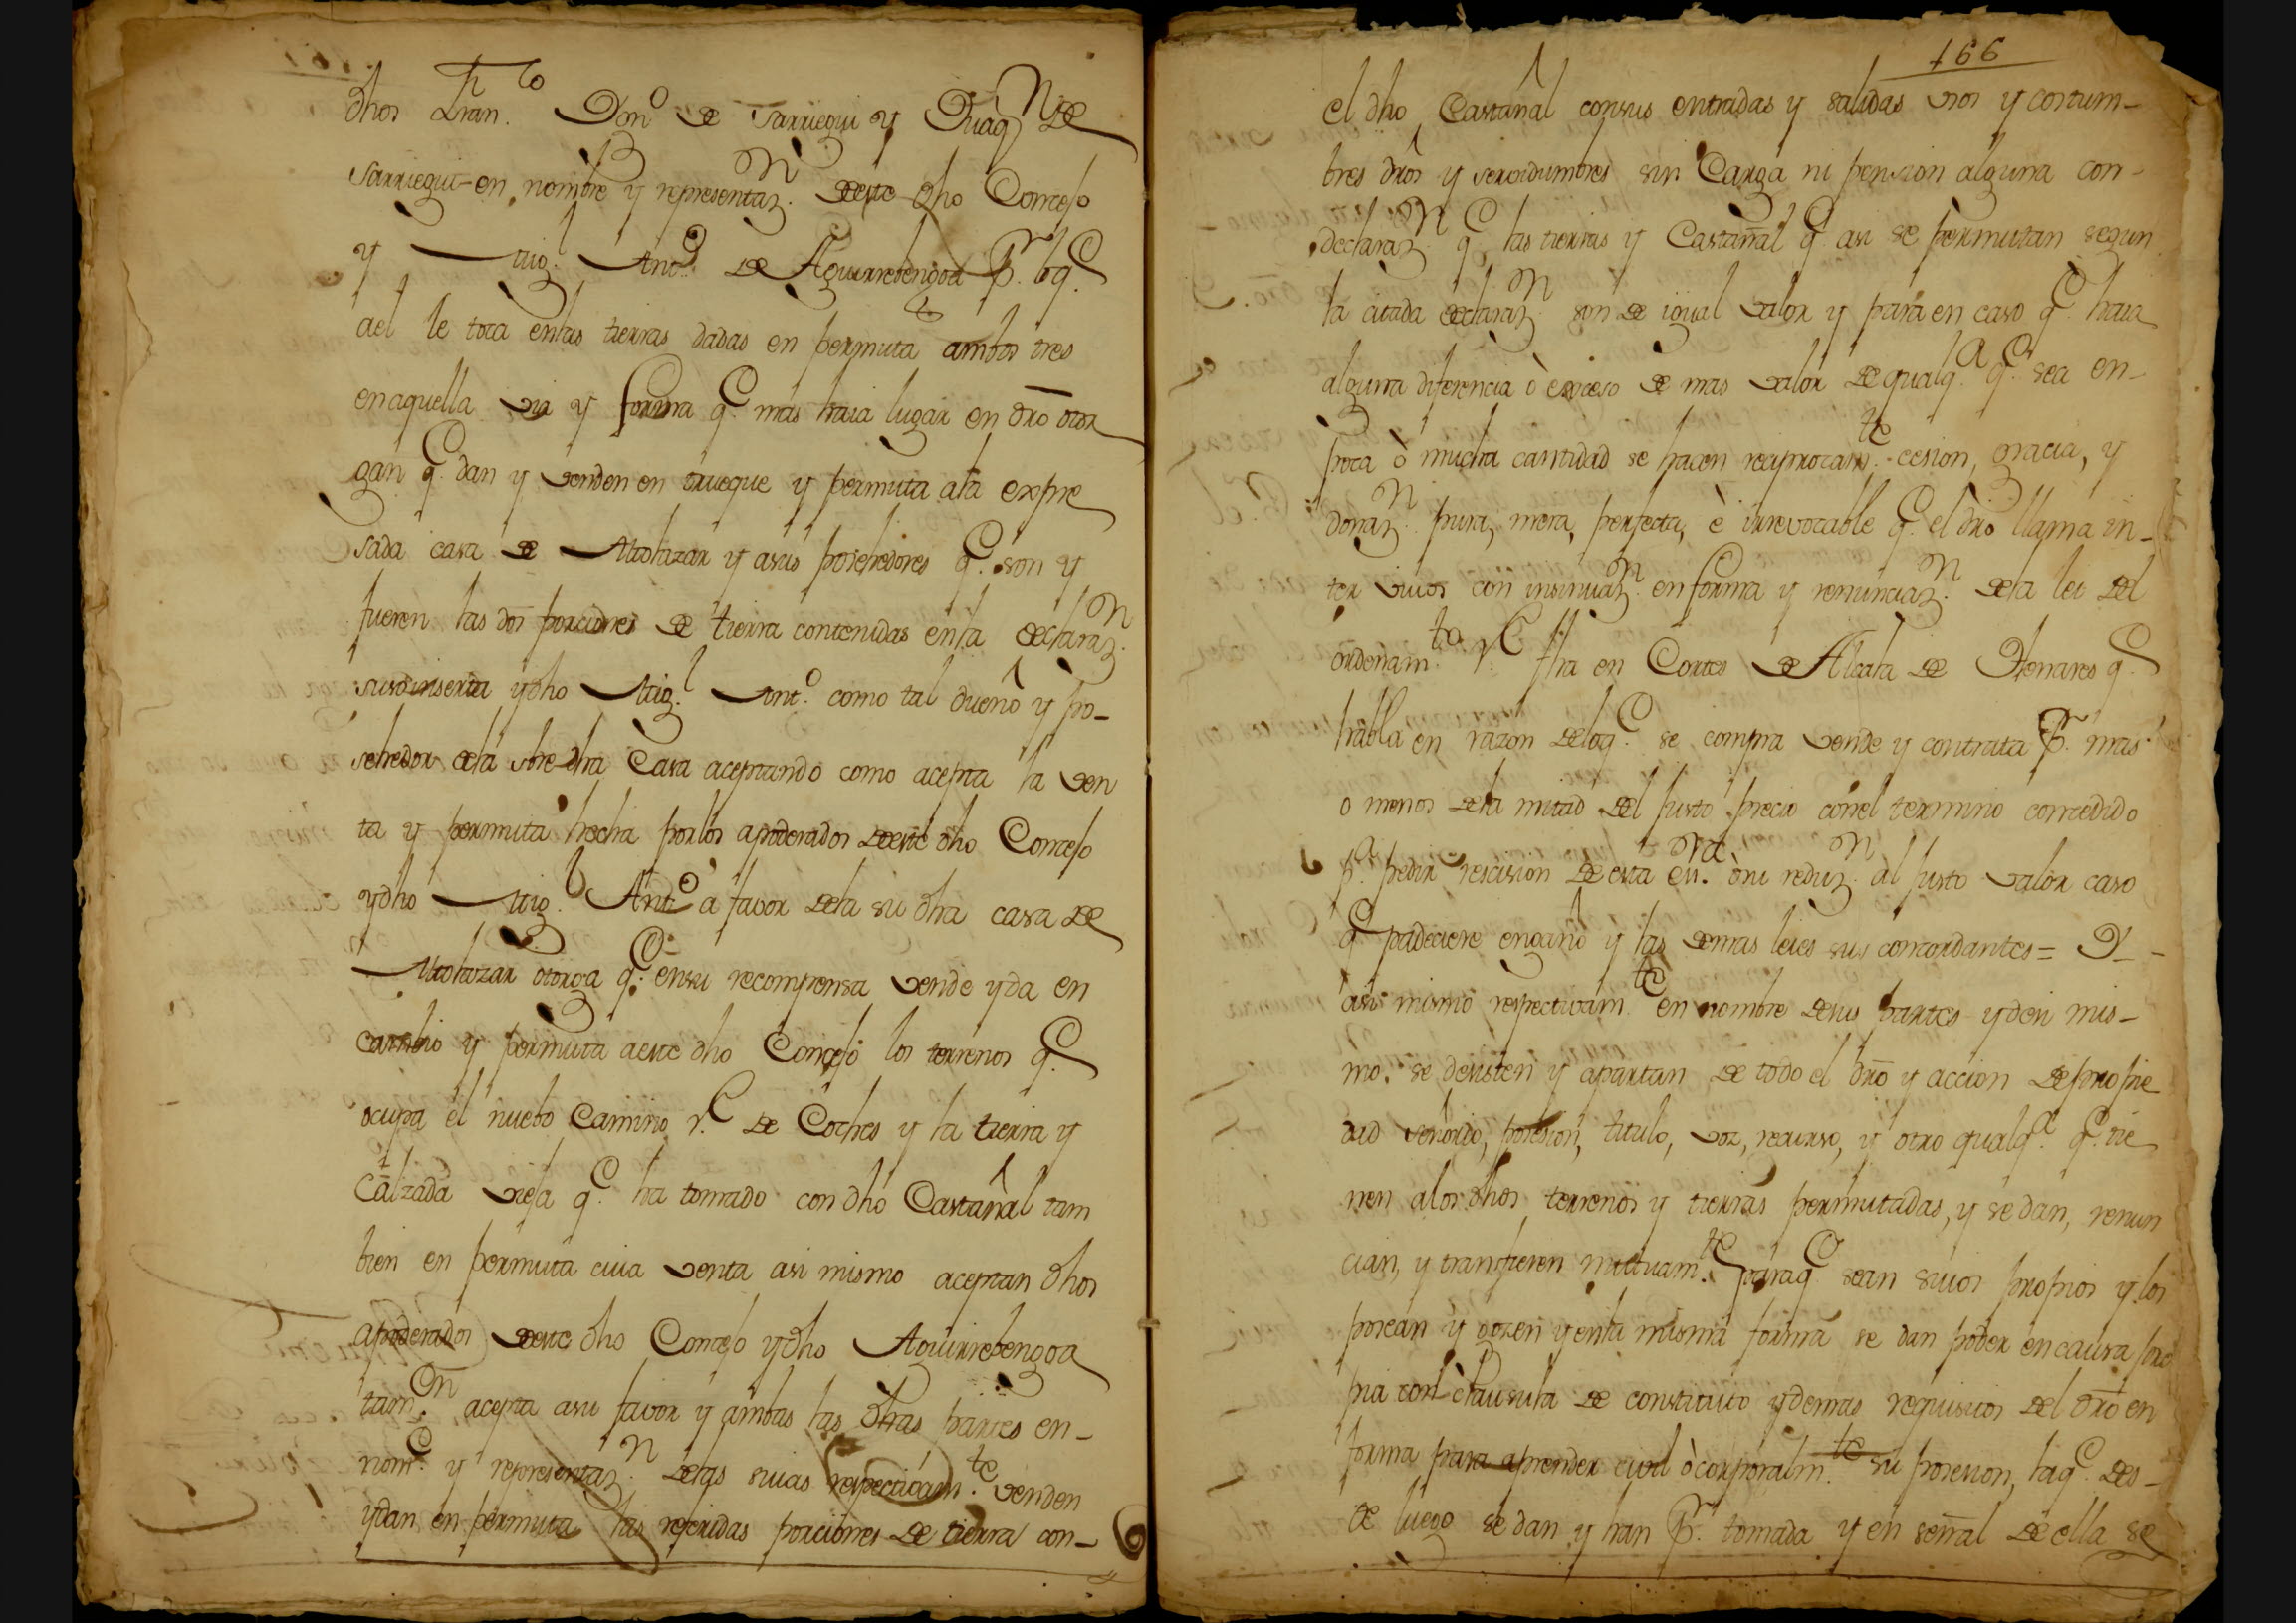 dhos Fran.co Dom.o de Sarriegui y Juaq.n de
Sarriegui en nombre y representaz.n deeste dho Concejo
y Mig.l Ant.o de Aguirrebengoa P.r lo q.e
ael le toca enlas tierras dadas en permuta ambos tres
enaquella via y forma q.e mas haia lugar en dro otor
gan q.e dan y venden en trueque y permuta ala expre
sada casa de y asus posehedores q.e son y
fueren las dos porciones de tierra contenidas enla declaraz.n
susoinserta ydho Mig.l Ant.o como tal dueño y po-
sehedor dela sbre dha Casa aceptando como acepta la ven
ta y permuta hecha porlos apoderados deeste dho Concejo
ydho Mig.l Ant.o à favor dela su dha casa de
otorga q.e ensu recompensa vende yda en
cambio y permuta aeste dho Concejo los terrenos q.e
ocupa el nuebo Camino r.l de Coches y la tierra y
Calzada vieja q.e ha tomado con dho Castañal tam
bien en permuta cuia venta asi mismo aceptan dhos
apoderados deeste dho Concejo ydho Aguirrebengoa
tam.n acepta asu favor y ambas las dhas partes en-
nom.e y representaz.n delas suias respectivam.te venden
ydan en permuta las referidas porciones de tierra con-
166
el dho Castañal consus entradas y salidas usos y costum-
bres dros y servidumbres sin Carga ni pension alguna con-
declaraz.n q.e las tierras y Castañal q.e asi se permutan segun
la citada declaraz.n son de igual valor y para en caso q.e haia
alguna diferencia ò exceso de mas valor de qualq.a q.e sea en-
poca ò mucha cantidad se hacen reciprocam.te cesion, gracia, y
donaz.n pura, mera, perfecta, è irrevocable q.e el dro llama in-
ter vivos con insinuaz.n en forma y renunciaz.n dela lei del
ordenam.to r.l fha en Cortes de Alcala de Henares q.e
habla en razon delo q.e se compra vende y contrata P.r mas
o menos dela mitad del justo precio conel termino concedido
p.a pedir rescision de esta es.ra òsu reduz.n al justo valor caso
q.e padeciere engaño y las demas leies sus concordantes = Y -
asi mismo respectivam.te en nombre desus partes ydesi mis-
mo. se desisten y apartan de todo el dro y accion depropie
dad señorio, posesion, titulo, voz, recurso, y otro qualq.a q.e tie
nen alos dhos terrenos y tierras permutadas, y se dan, renun
cian, y transfieren mutuam.te paraq.e sean suios propios y los
posean y gozen yenla misma forma se dan poder encausa pro
pia con clausula de constituto ydemas requisitos del dro en
forma para aprender civil òcorporalm.te su posesion, laq.e des-
de luego se dan y han P.r tomada y en señal de ella se